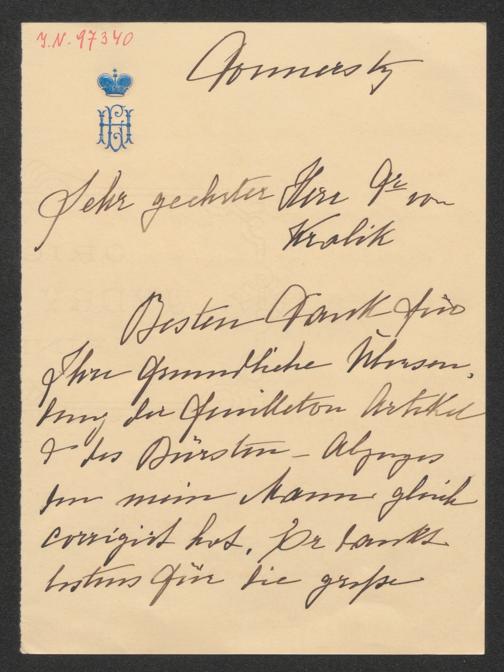 J.N. 97340
Donnerstg
Sehr geehrter Herr Dr von
Kralik
Besten Dank für
Ihre freundliche Übersen-
dung der Feuilleton Artikel
& des Bürsten-Abzuges
den mein Mann gleich
corrigirt hat. Er dankt
bestens für die große